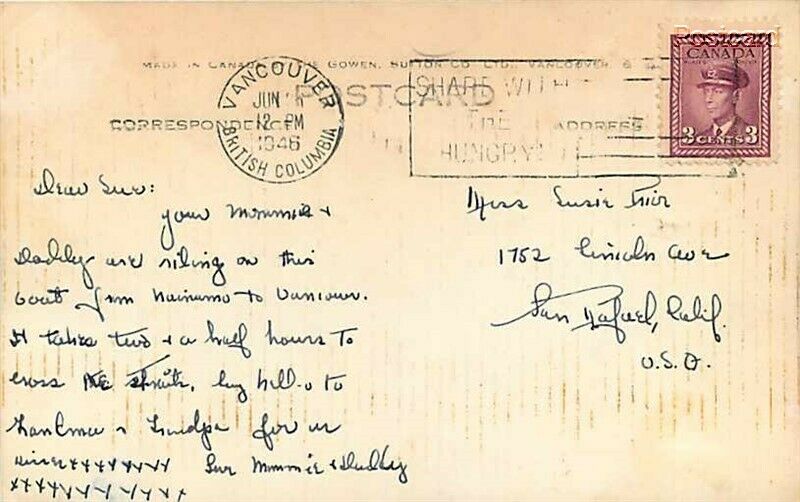 Postcard
CANADA
MADE IN CANADA THE GOWEN, SUTTON CO. LTD., VANCOUVER, B
POSTCARD
VANCOUVER
JUN
12 PM
1946
BRITISH COLUMBIA
SHARE WITH
THE
HUNGRY!
3 CENTS 3
CORRESPONDENCE
ADDRESS
Dear Sue:
your Mommie +
Daddy are riding on this
boat from Nanaimo to Vancouver.
It takes two + a half hours to
cross the straits, say hello to
Grandma + Grandpa for us
xxxxxxxx Mommie + Daddy
xxxxxxxxxxx
Miss Susie
1752 Lincoln Ave
San Rafael, Calif.
U.S.A.